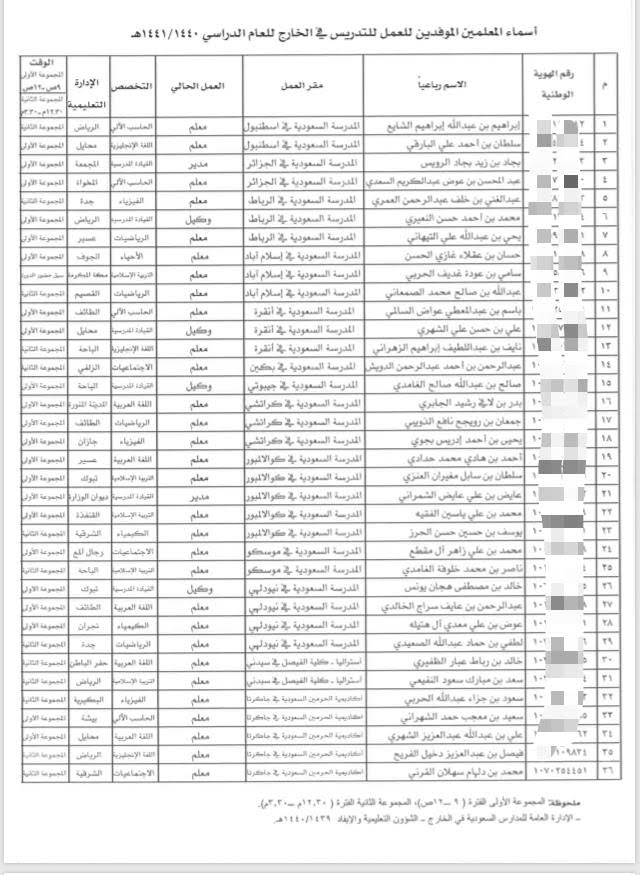 أسماء المعلمين الموفدين للعمل للتدريس في الخارج للعام الدراسي ١٤٤١/١٤٤٠هـ
م رقم الهوية الوطنية الاسم رباعياً مقر العمل العمل الحالي التخصص الإدارة التعليمية الوقت المجموعة الأولى ٩ص -١٢ص المجموعة الثانية ١٢,٣٠م-٣,٣٠م
١ إبراهيم بن عبدالله إبراهيم الشايع المدرسة السعودية في اسطنبول معلم الحاسب الآلي الرياض المجموعة الثانية
٢ سلطان بن أحمد علي البارقي المدرسة السعودية في اسطنبول معلم اللغة الإنجليزية محايل المجموعة الأولى
٣ بجاد بن زيد بجاد الرويس المدرسة السعودية في الجزائر مدير القيادة المدرسية المجمعة المجموعة الأولى
٤ عبد المحسن بن عوض عبدالكريم السعدي المدرسة السعودية في الجزائر معلم الحاسب الآلي المخواة المجموعة الأولى
٥ عبدالغني بن خلف عبدالرحمن العمري المدرسة السعودية في الرباط معلم الفيزياء جدة المجموعة الثانية
٦ محمد بن أحمد حسن النعيري المدرسة السعودية في الرباط وكيل القيادة المدرسية الرياض المجموعة الأولى
٧ يحي بن عبدالله علي التيهاني المدرسة السعودية في الرباط معلم الرياضيات عسير المجموعة الأولى
٨ حسان بن عقلاء غازي الحسن المدرسة السعودية في إسلام آباد معلم الأحياء الجوف المجموعة الأولى
٩ سامي بن عودة غديف الحربي المدرسة السعودية في إسلام آباد معلم التربية الإسلامية مكة المكرمة سبق حضور الدورة
١٠ عبدالله بن صالح محمد الصمعاني المدرسة السعودية في إسلام آباد معلم الرياضيات القصيم المجموعة الثانية
١١ باسم بن عبدالمعطي عواض السالمي المدرسة السعودية في أنقرة معلم الحاسب الآلي الطائف المجموعة الأولى
١٢ علي بن حسن علي الشهري المدرسة السعودية في أنقرة وكيل القيادة المدرسية محايل المجموعة الأولى
١٣ نايف بن عبداللطيف إبراهيم الزهراني المدرسة السعودية في أنقرة معلم اللغة الإنجليزية الباحة المجموعة الثانية
١٤ عبدالرحمن بن أحمد عبدالرحمن الدويش المدرسة السعودية في بكين معلم الاجتماعيات الزلفي المجموعة الثانية
١٥ صالح بن عبدالله صالح الغامدي المدرسة السعودية في جيبوتي وكيل القيادة المدرسية الباحة المجموعة الأولى
١٦ بدر بن لافي رشيد الجابري المدرسة السعودية في كراتشي معلم اللغة العربية المدينة المنورة المجموعة الأولى
١٧ جمعان بن رويجح نافع الذويبي المدرسة السعودية في كراتشي معلم الرياضيات الطائف المجموعة الأولى
١٨ يحيى بن أحمد إدريس بجوي المدرسة السعودية في كراتشي معلم الفيزياء جازان المجموعة الأولى
١٩ أحمد بن هادي محمد حدادي المدرسة السعودية في كوالالمبور معلم اللغة العربية عسير المجموعة الأولى
٢٠ سلطان بن سابل مغيران العنزي المدرسة السعودية في كوالالمبور معلم التربية الإسلامية تبوك المجموعة الأولى
٢١ عايض بن علي عايض الشمراني المدرسة السعودية في كوالالمبور مدير القيادة المدرسية ديوان الوزارة المجموعة الأولى
٢٢ محمد بن علي ياسين الفقيه المدرسة السعودية في كوالالمبور معلم التربية الإسلامية القنفذة المجموعة الأولى
٢٣ يوسف بن حسين حسن الحرز المدرسة السعودية في كوالالمبور معلم الكيمياء الشرقية المجموعة الثانية
٢٤ محمد بن علي زاهر آل مقطع المدرسة السعودية في موسكو معلم الاجتماعيات رجال ألمع المجموعة الأولى
٢٥ ناصر بن محمد خلوفة الغامدي المدرسة السعودية في موسكو معلم التربية الإسلامية الباحة المجموعة الثانية
٢٦ خالد بن مصطفى هجان يونس المدرسة السعودية في نيودلهي وكيل القيادة المدرسية تبوك المجموعة الأولى
٢٧ عبدالرحمن بن عايف سراج الخالدي المدرسة السعودية في نيودلهي معلم اللغة العربية الطائف المجموعة الأولى
٢٨ عوض بن علي معدي آل هتيله المدرسة السعودية في نيودلهي معلم الكيمياء نجران المجموعة الأولى
٢٩ لطفي بن حماد عبدالله الصعيدي المدرسة السعودية في نيودلهي معلم الرياضيات جدة المجموعة الثانية
٣٠ خالد بن رباط عبار الظفيري أستراليا - كلية الفيصل في سيدني معلم اللغة العربية حفر الباطن المجموعة الثانية
٣١ سعد بن مبارك سعود النفيعي أستراليا - كلية الفيصل في سيدني معلم التربية الإسلامية الرياض المجموعة الثانية
٣٢ سعود بن جزاء عبدالله الحربي أكاديمية الحرمين السعودية في جاكرتا معلم الفيزياء البكيرية المجموعة الثانية
٣٣ سعيد بن معجب حمد الشهراني أكاديمية الحرمين السعودية في جاكرتا معلم الحاسب الآلي بيشة المجموعة الأولى
٣٤ علي بن عبدالله عبدالعزيز الشهري أكاديمية الحرمين السعودية في جاكرتا معلم اللغة العربية محايل المجموعة الأولى
٣٥ ١٠٩٨٣٤ فيصل بن عبدالعزيز دخيل الفريح أكاديمية الحرمين السعودية في جاكرتا معلم اللغة الإنجليزية الرياض المجموعة الثانية
٣٦ ١٠٧٠٢٥٤٤٥١ محمد بن دليم سهلان القرني أكاديمية الحرمين السعودية في جاكرتا معلم الاجتماعيات الشرقية المجموعة الثانية
ملحوظة: المجموعة الأولى الفترة ( ٩ –١٢ص)، المجموعة الثانية الفترة ( ١٢,٣٠م –٣,٣٠م).
– الإدارة العامة للمدارس السعودية في الخارج – الشؤون التعليمية والإيفاد ١٤٤٠/١٤٣٩هـ.